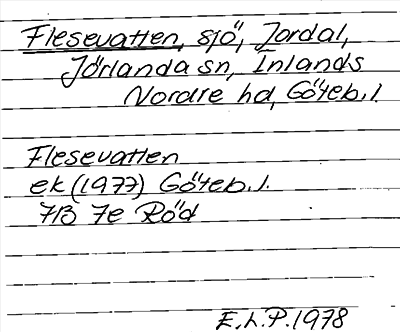 Flesevatten, sjö, Jordal,
Jörlanda sn, Inlands
Nordre hd, Göteb. l.
Flesevatten
ek (1977) Göteb. l.
7B 7e Röd
E.L.P. 1978